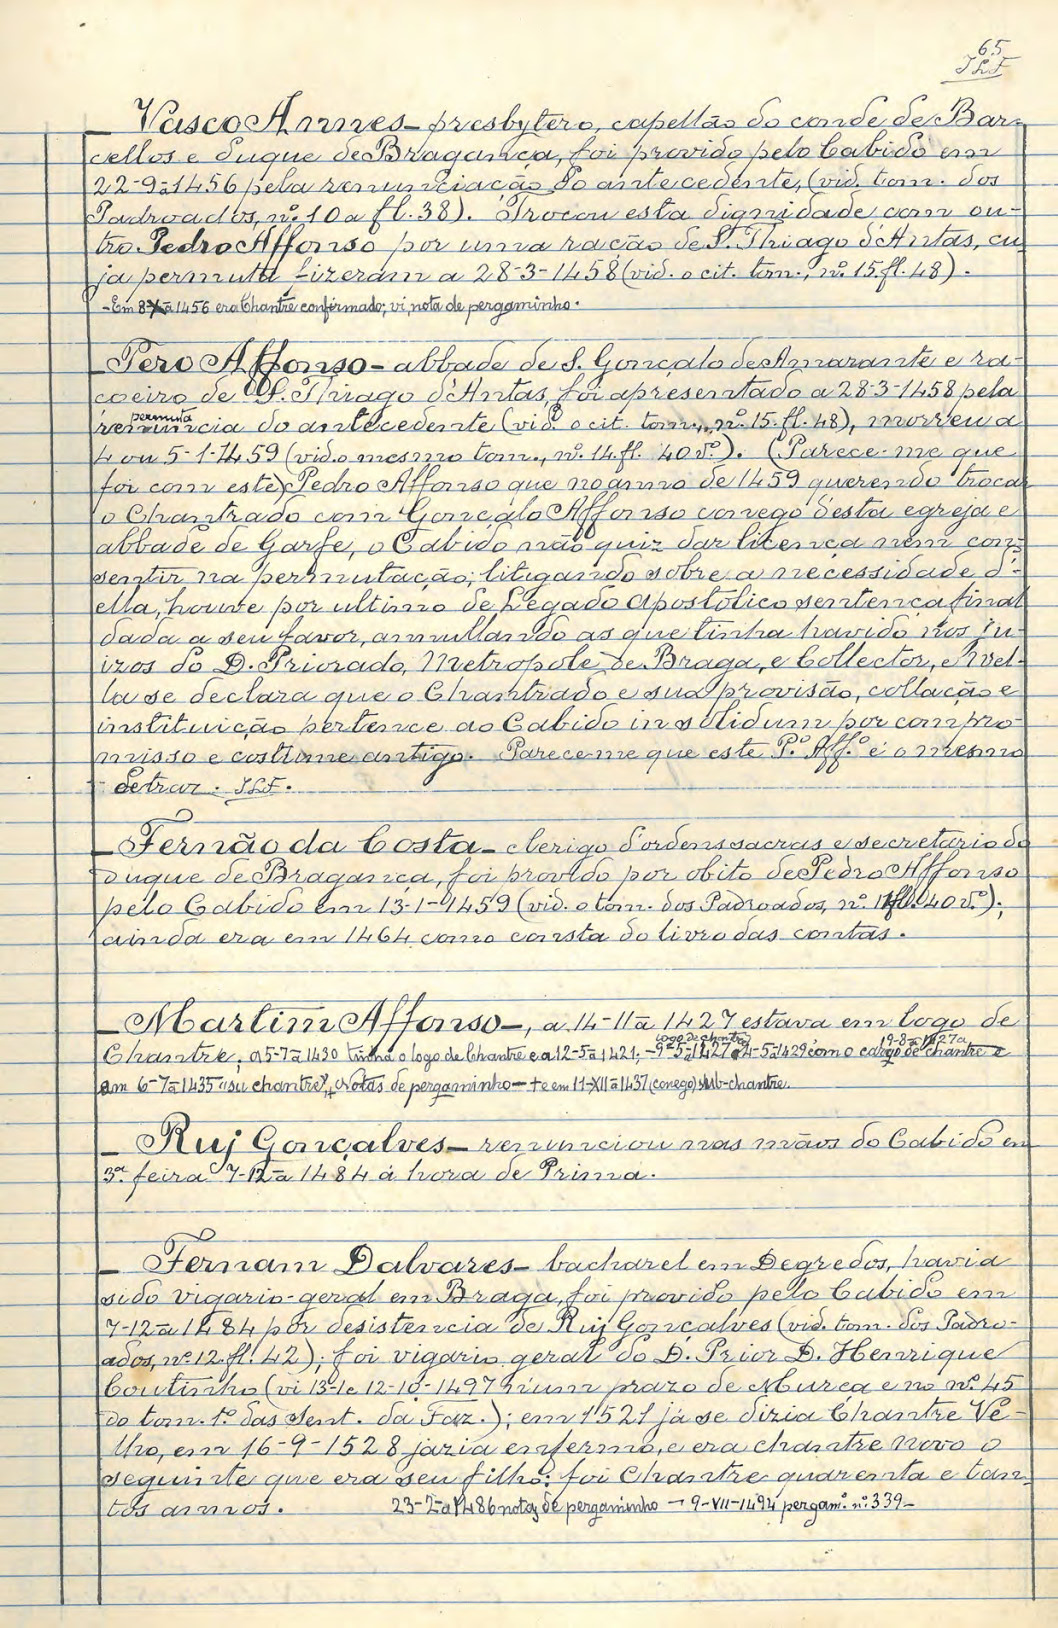 65
JLF
— Vasco Annes — presbytero, capellão do conde de Bar-
cellos e duque de Bragança, foi provido pelo Cabido em
22-9-a 1456 pela renunciação do antecedente, (vid. tom. dos
Padroados, nº. 10 a fl. 38). Trocou esta dignidade com ou-
tro Pedro Affonso por uma ração de S. Thiago d'Antas, cu-
ja permuta fizeram a 28-3-1458 (vid. o cit. tom., nº. 15. fl. 48).
- Em 8-X-a 1456 era Chantre confirmado; vi, nota de pergaminho.
— Pero Affonso — abbade de S. Gonçalo de Amarante e ra-
coeiro de S. Thiago d'Antas, foi apresentado a 28-3-1458 pela
permuta
renuncia do antecedente (vid. o cit. tom., nº. 15. fl. 48), morreu a
4 ou 5-1-1459 (vid. o mesmo tom., nº. 14. fl. 40 vº.). (Parece-me que
foi com este) Pedro Affonso que no anno de 1459 querendo trocar
o Chantrado com Gonçalo Affonso conego d'esta egreja e
abbade de Garfe, o Cabido não quiz dar licença nem con-
sentir na permutação; litigando sobre a necessidade d'-
ella, houve por ultimo de Legado Apostolico sentença final
dada a seu favor, annullando as que tinha havido nos Ju-
izos do D. Priorado, Metropole de Braga, e Collector, e n'el-
la se declara que o Chantrado e sua provisão, collação e
instituição pertence ao Cabido in solidum por compro-
misso e costume antigo. Parece-me que este P.º Aff.º é o mesmo
detraz. JLF.
— Fernão da Costa — clerigo d'ordens sacras e secretario do
Duque de Bragança, foi provido por obito de Pedro Affonso
pelo Cabido em 13-1-1459 (vid. o tom. dos Padroados, nº. 14 fl. 40 vº.);
ainda era em 1464 como consta do livro das contas.
— Martim Affonso —, a 14-11-a 1427 estava em logo de
logo de chantre 19-8-a 1427 a
Chantre; a 5-7-a 1430 tinha o logo de Chantre e a 12-5-a 1421; -9-5-1427 a 4-5-a 1429 com o cargo de chantre e
em 6-7-a 1435 "su chantre", Notas de pergaminho — + e em 11-XII-a 1437 (conego) sub-chantre.
— Ruj Gonçalves — renunciou nas mãos do Cabido em
3ª. feira 7-12-a 1484 á hora de Prima.
— Fernam Dalvares — bacharel em Degredos, havia
sido vigario-geral em Braga, foi provido pelo Cabido em
7-12-a 1484 por desistencia de Ruj Gonçalves (vid. tom. dos Padro-
ados, nº. 12. fl. 42); foi vigario geral do D. Prior D. Henrique
Coutinho (vi 13-1 e 12-10-1497 n'um prazo de Murça e no nº. 45
do tom. 1º. das Sent. da Faz.); em 1521 já se dizia Chantre Ve-
lho, em 16-9-1528 jazia enfermo, e era chantre novo o
seguinte que era seu filho: foi Chantre quarenta e tan-
tos annos. 23-2-a 1486 notas de pergaminho — 9-VII-1494 pergam.º nº. 339 —